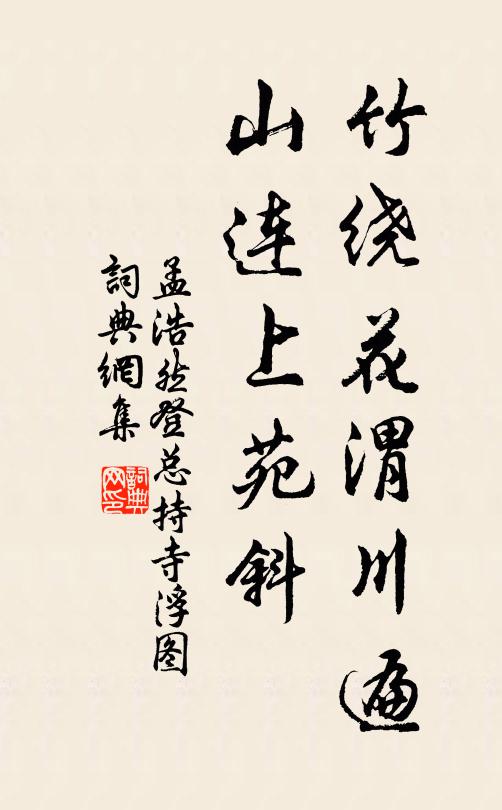 竹绕花渭川遍
山连上苑斜
孟浩然登总持寺浮图
詞典網集
詞典网印